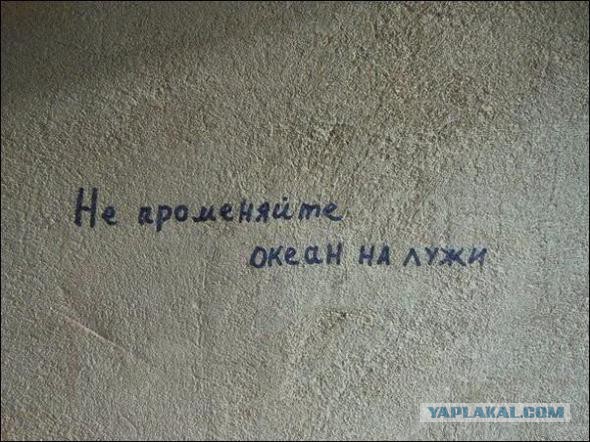 Не променяйте
океан на лужи
YAPLAKAL.COM